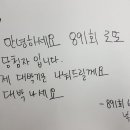 안녕하세요 891회 로또
당첨자 입니다.
제 대박기운 나눠드릴게요
대박 나세요
-891회